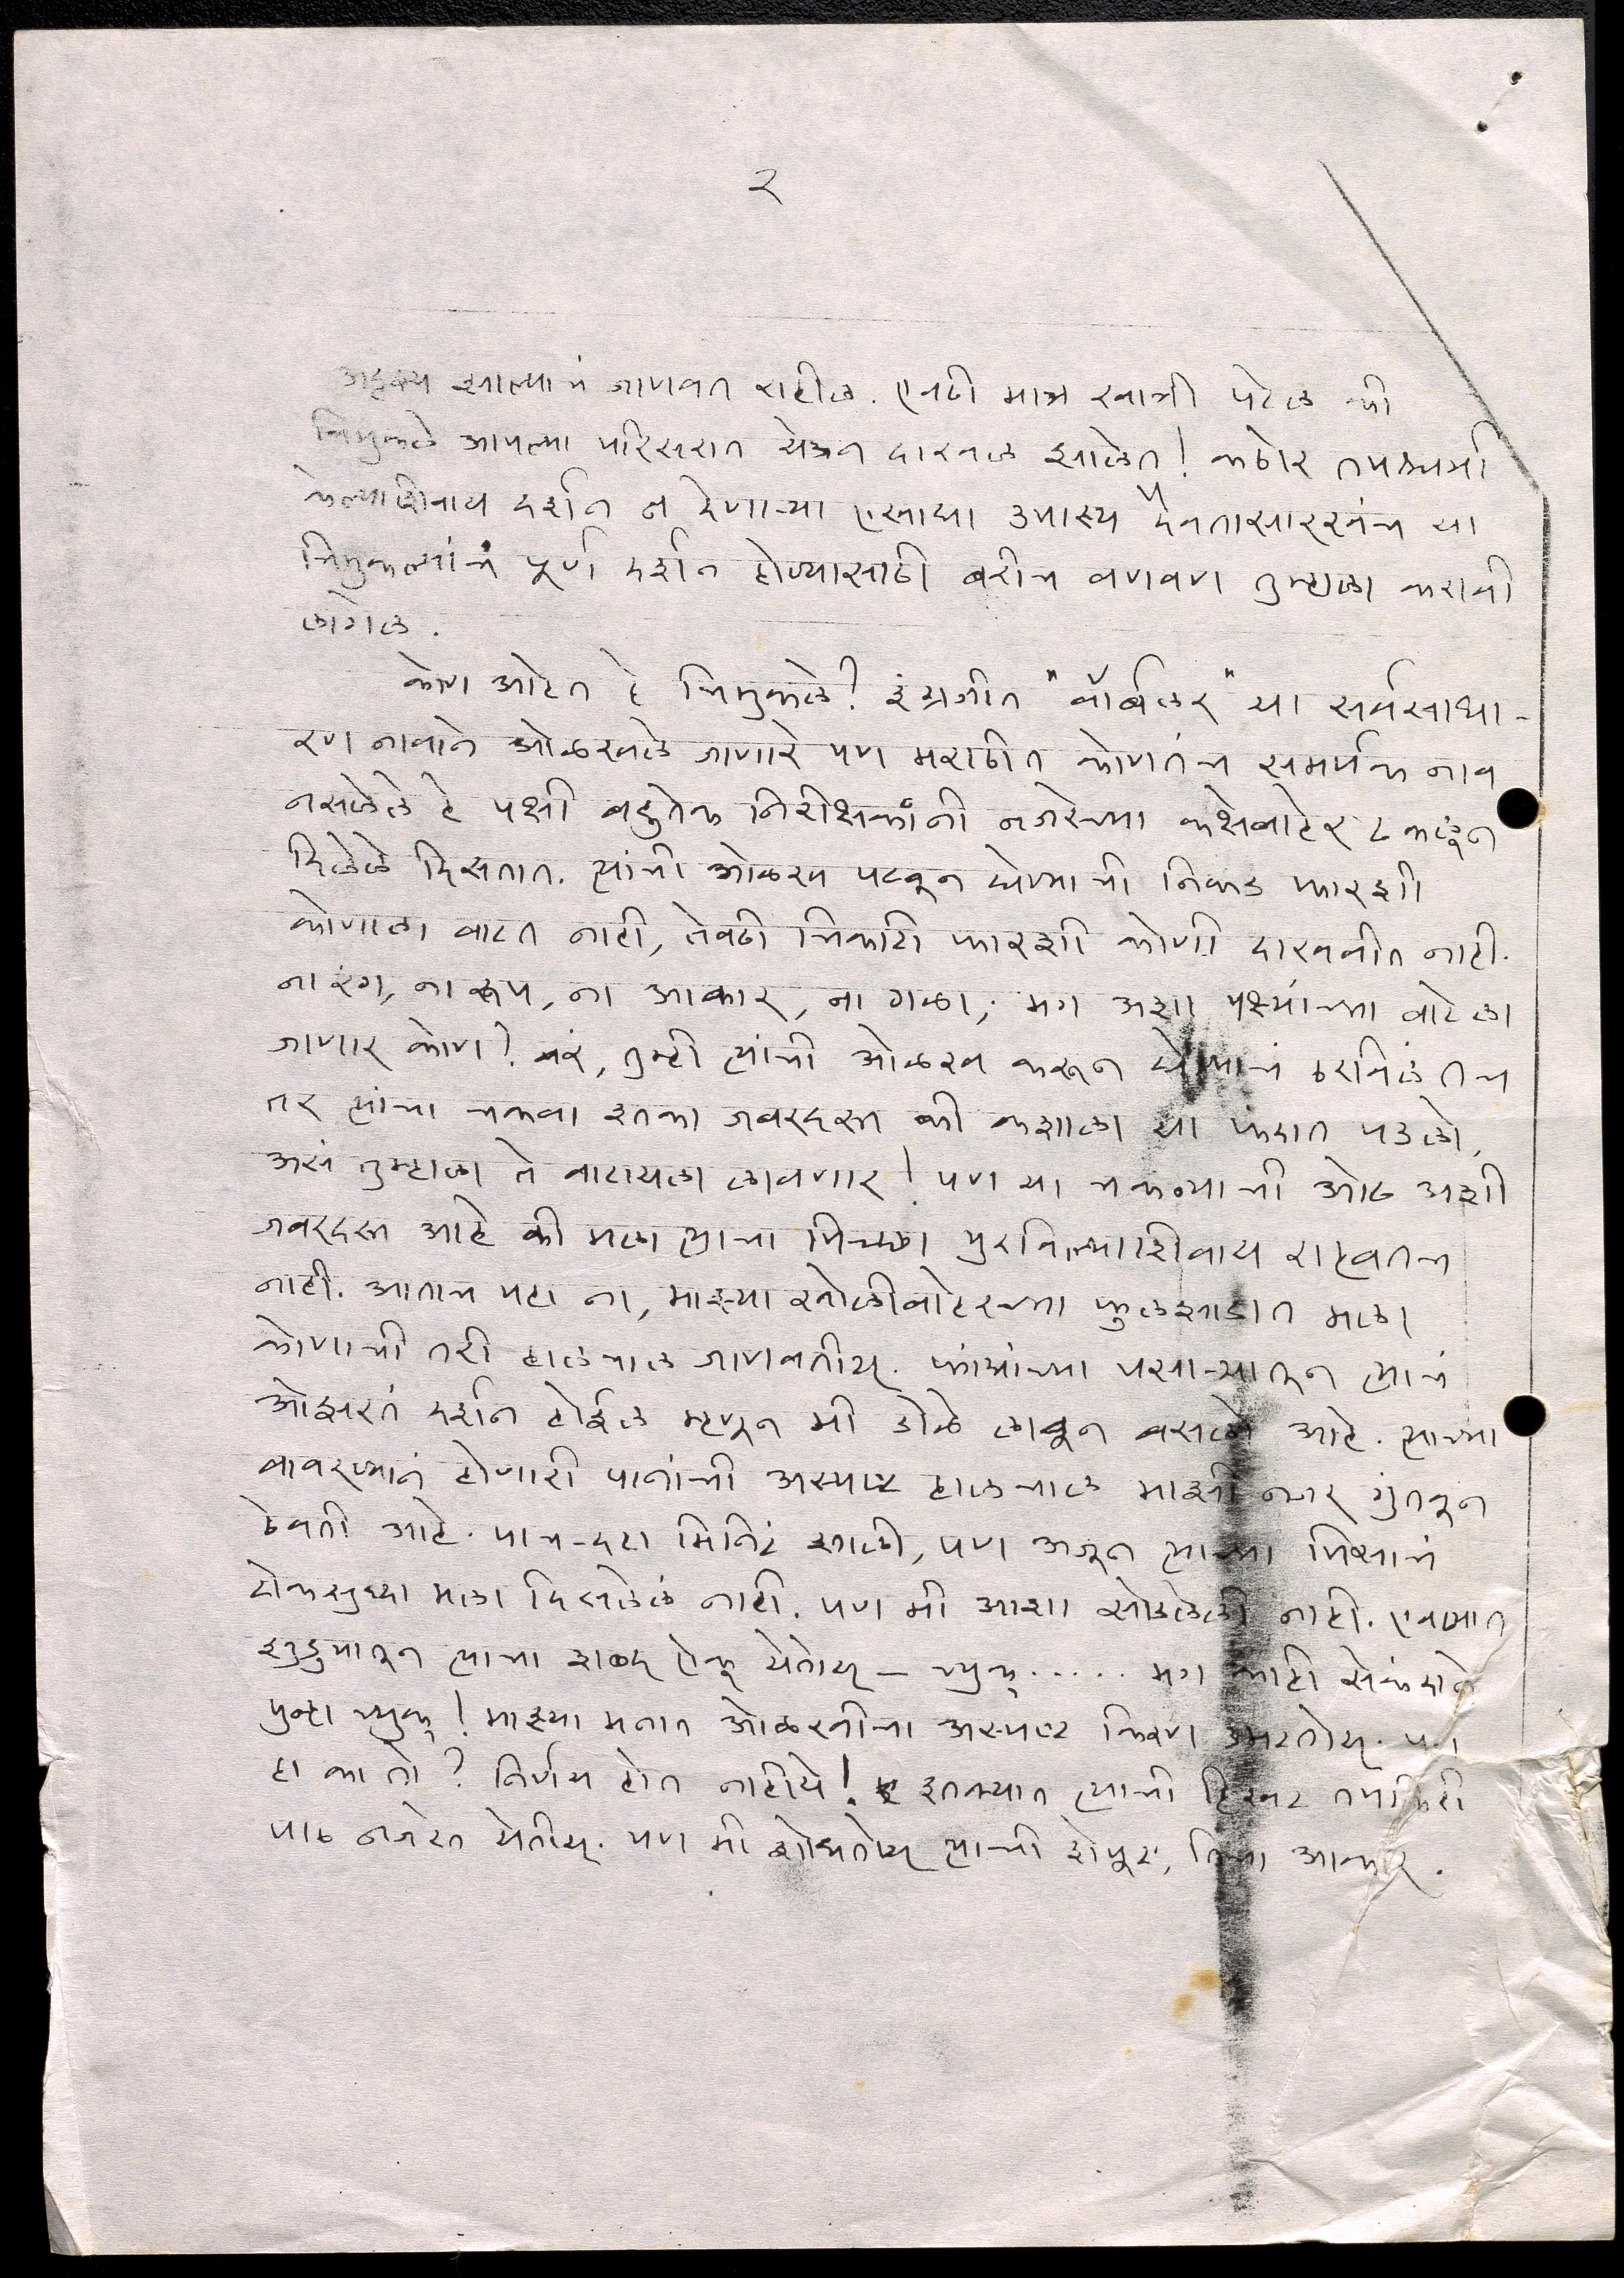 २
अदृश्य झाल्याचं जाणवत राहील. एवढी मात्र खात्री पटेल की
चिमुकले आपल्या परिसरात येऊन दाखल झालेत! कठोर तपश्चर्या
केल्याशिवाय दर्शन न देणाऱ्या एखाद्या उपास्य दैवतासारखंच या
चिमुकल्यांचं पूर्ण दर्शन होण्यासाठी बरीच वणवण तुम्हाला करावी
लागेल.
कोण आहेत हे चिमुकले? इंग्रजीत "वॉर्बलर" या सर्वसाधा-
रण नावाने ओळखले जाणारे पण मराठीत कोणतंच समर्पक नाव
नसलेले हे पक्षी बहुतेक निरीक्षकांनी नजरेच्या कक्षेबाहेर ढकलून
दिलेले दिसतात. त्यांची ओळख पटवून घेण्याची निकड फारशी
कोणाला वाटत नाही, तेवढी चिकाटी फारशी कोणी दाखवीत नाही.
ना रंग, ना रूप, ना आकार, ना गळा; मग अशा पक्ष्यांच्या वाटेला
जाणार कोण? बरं, तुम्ही त्यांची ओळख करून घेण्याचं ठरविलंतच
तर त्यांचा चकवा इतका जबरदस्त की कशाला या फंदात पडलो,
असं तुम्हाला ते वाटायला लावणार! पण या चकव्याची ओढ अशी
जबरदस्त आहे की मला त्याचा पिच्छा पुरविल्याशिवाय राहवतच
नाही. आताच पहा ना, माझ्या खोलीबाहेरच्या फुलझाडात मला
कोणाची तरी हालचाल जाणवतीय. फांद्यांच्या पसाऱ्यातून त्याचं
ओझरतं दर्शन होईल म्हणून मी डोळे लावून बसलो आहे. त्याच्या
वावरण्यानं होणारी पानांची अस्पष्ट हालचाल माझी नजर गुंतवून
ठेवती आहे. पाच-दहा मिनिटं झाली, पण अजून त्याच्या पिसाचं
टोकसुध्दा मला दिसलेलं नाही. पण मी आशा सोडलेली नाही. एवढ्यात
झुडुपातून त्याचा शब्द ऐकू येतोय – च्युक्..... मग काही सेकंदाने
पुन्हा च्युक्! माझ्या मनात ओळखीचा अस्पष्ट किरण उमटतोय. पण
हा का तो? निर्णय होत नाहीये! इतक्यात त्याची हिरवट तपकिरी
पाठ नजरेत येतीय. पण मी शोधतोय त्याची शेपूट, तिचा आकार.